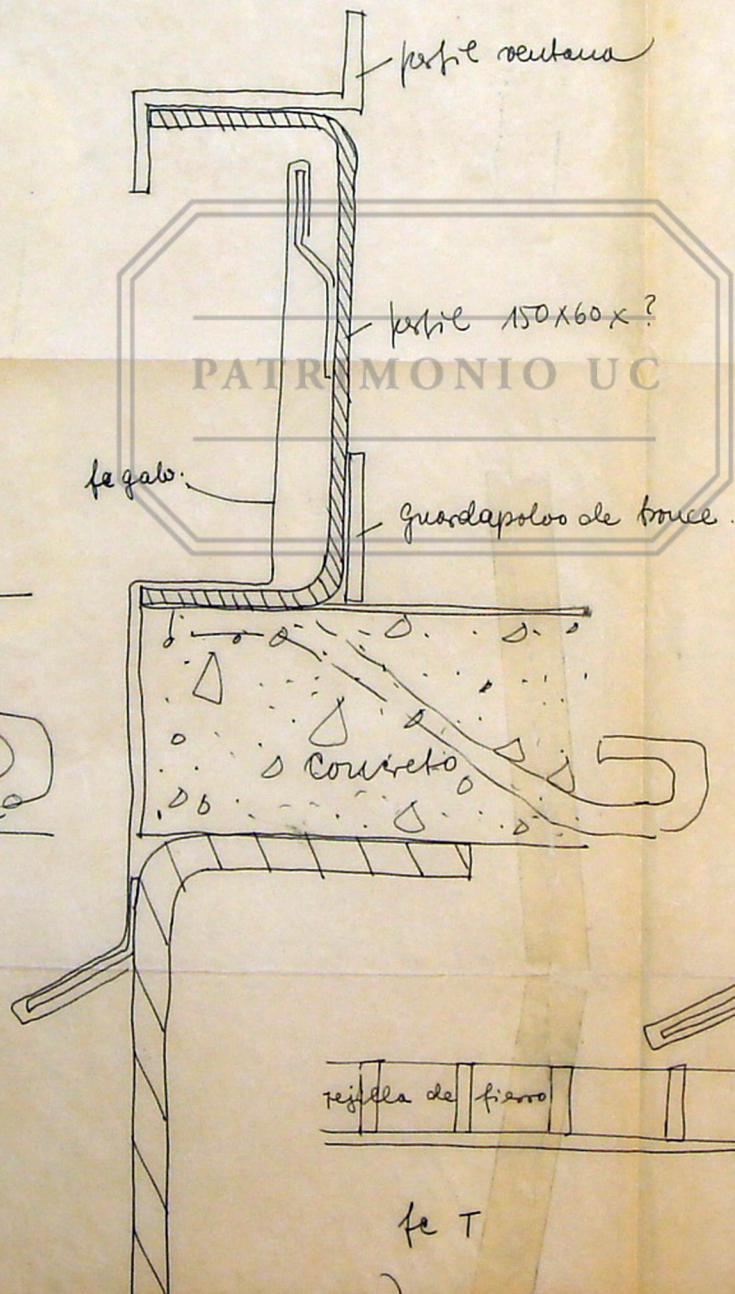 perfil ventana
perfil 150x60x?
PATRIMONIO UC
fe galv.
guardapolvo de bronce.
concreto
rejilla de fierro
fe T